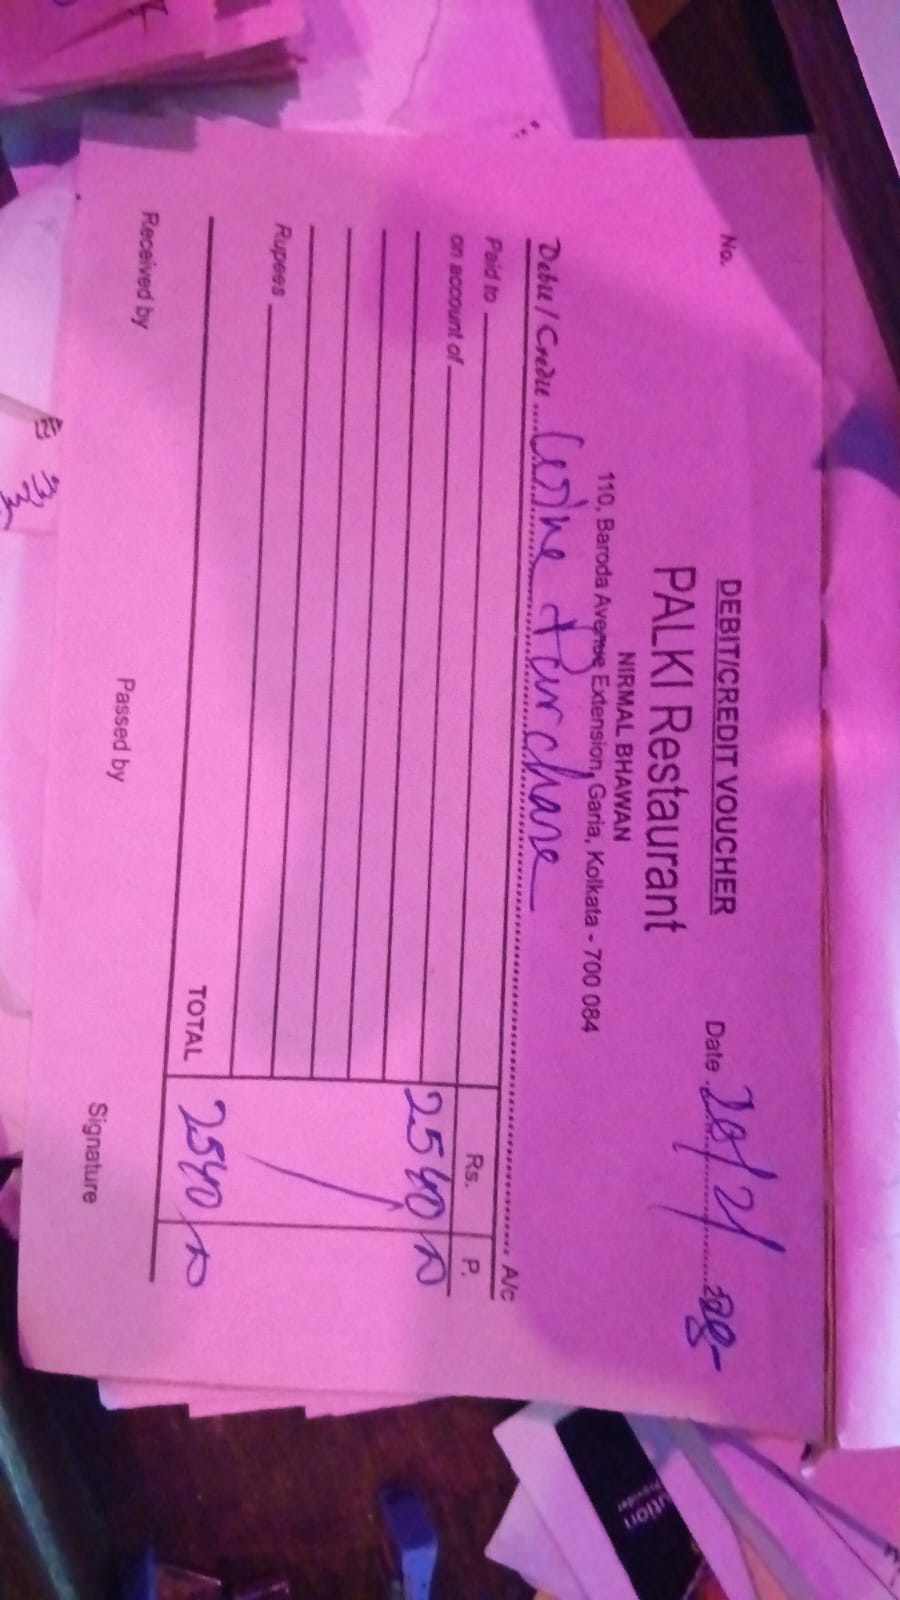 DEBIT/CREDIT VOUCHER
No.
Date 20/2/
PALKI Restaurant
NIRMAL BHAWAN
110, Baroda Avenue Extension, Garia, Kolkata - 700 084
Debit / Credit Purchase A/c
Paid to
Rs. P.
on account of
2540
Rupees
TOTAL 2540
Received by
Passed by
Signature